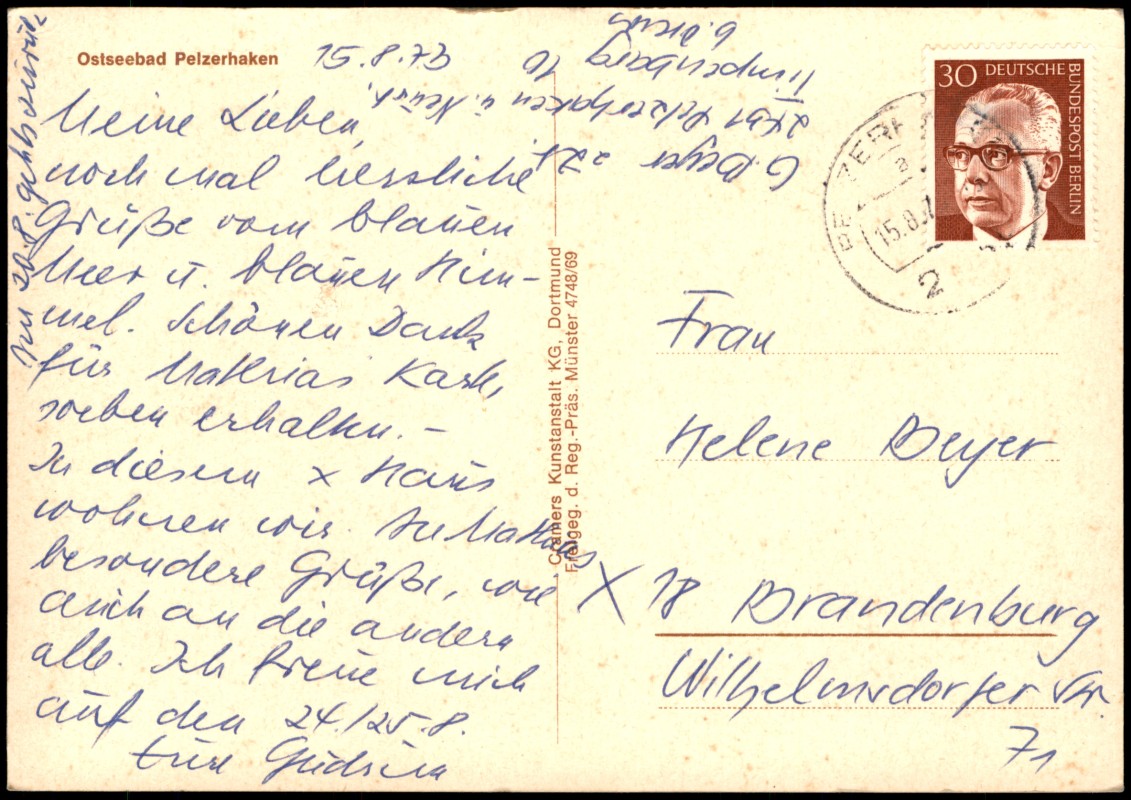 Ostseebad Pelzerhaken
15.8.73
Meine Lieben,
noch mal herzliche
Grüße vom blauen
Meer u. blauen Him-
mel. Schönen Dank
für Mathias Karte,
soeben erhalten. –
In diesem x Haus
wohnen wir. An Mathias
besondere Grüße, wie
auch an die andern
alle. Ich freue mich
auf den 24./25.8.
Eure Gudrun
am 20.8. geht's zurück
G. Beyer z. Zt.
2431 Pelzerhaken ü. Neust.
Timpenberg 10
b.
Cramers Kunstanstalt KG, Dortmund
Freigeg. d. Reg.-Präs. Münster 4748/69
30 DEUTSCHE BUNDESPOST BERLIN
PELZERH
a
15.8.7
2
Frau
Helene Beyer
X 18 Brandenburg
Wilhelmsdorfer Str.
71